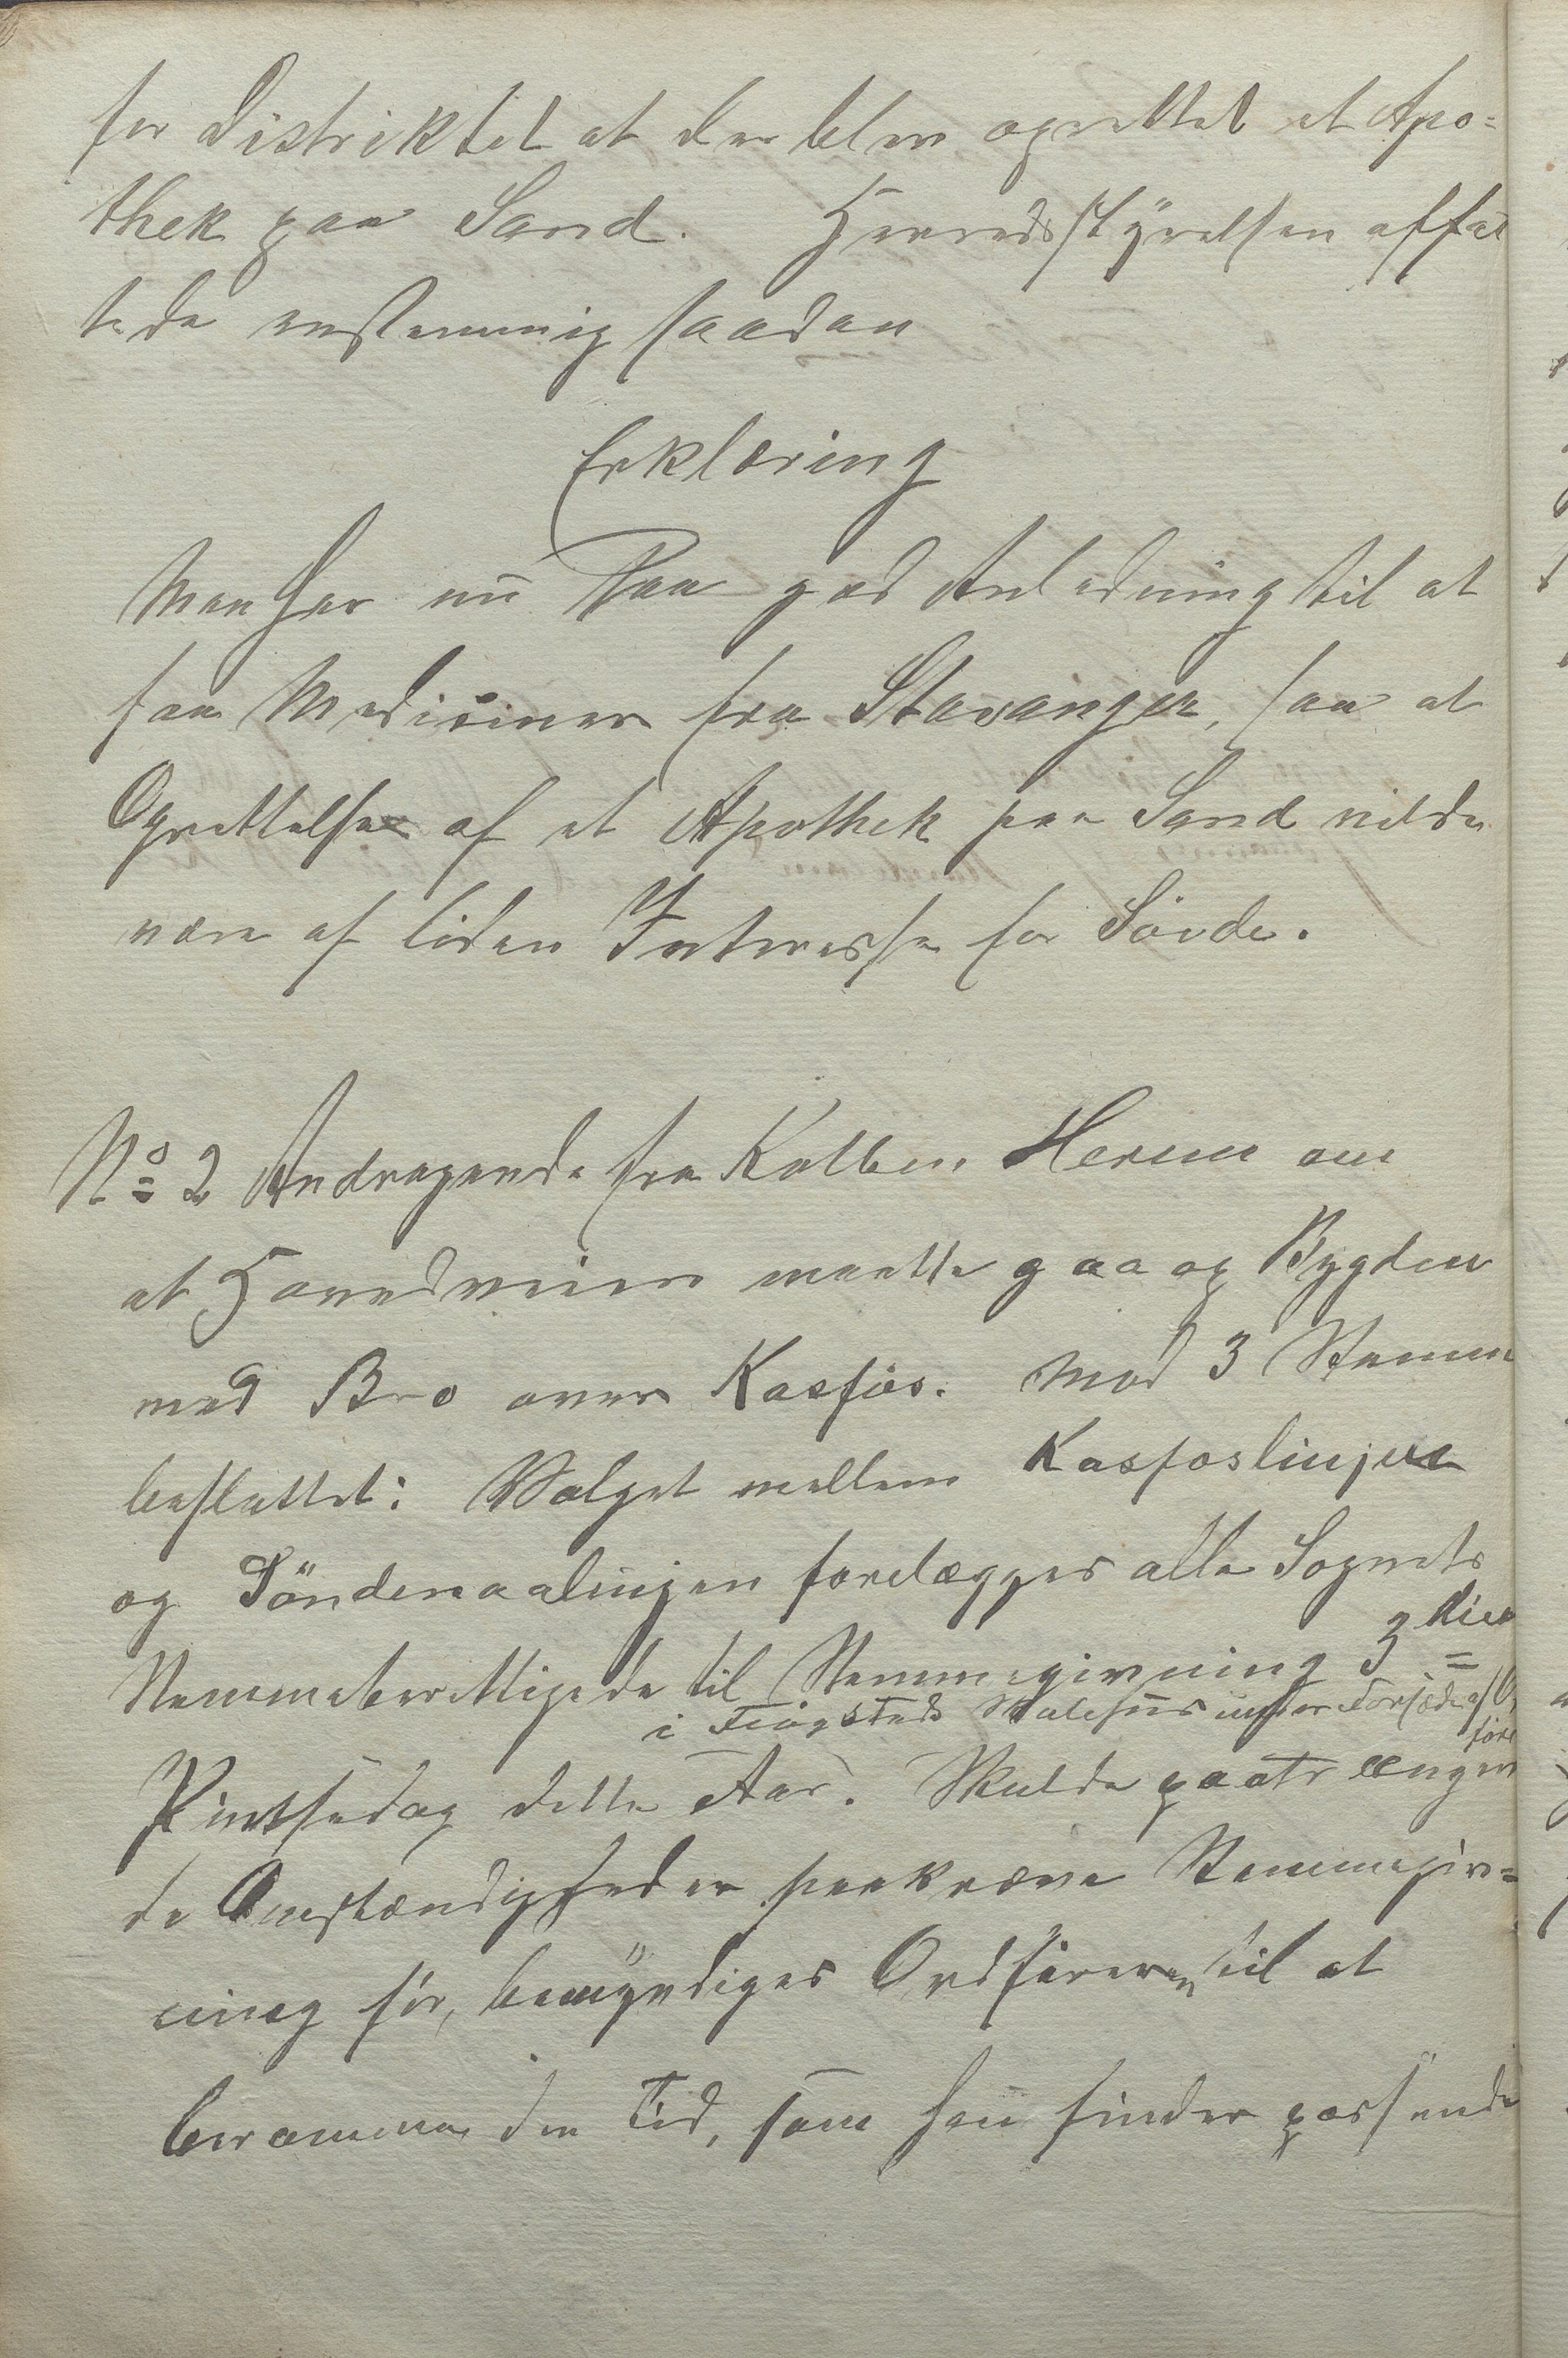 for Distriktet at der blev oprettet et Apo=
thek paa Sand. Herredsstyrelsen affat
tede enstemmig saadan
Erklæring
Man har nu saa god Anledning til at
faa Mediciner fra Stavanger, saa at
Oprettelse af et Apothek paa Sand vilde
være af liden Interesse for Søvde.
No 2 Andragende fra Kolben Herum om
at Hovedveien maatte gaa op Bygden
med Bro over Kasfos. Mod 3 Stemmer
besluttet: Valget mellem Kasfoslinjen
og Söndenaalinjen forelægges alle Sognets
Stemmeberettigede til Stemmegivning 3die
i Tengsteds Skolehus under Forsæde af Ord
fører
Pintsedag dette Aar. Skulde paatrængen
de Omstændigheder paakræve Stemmegiv=
ning før, bemyndiges Ordføreren til at
beramme den Tid, som han finder passende